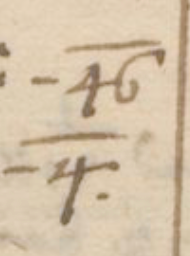 : -46
-4.